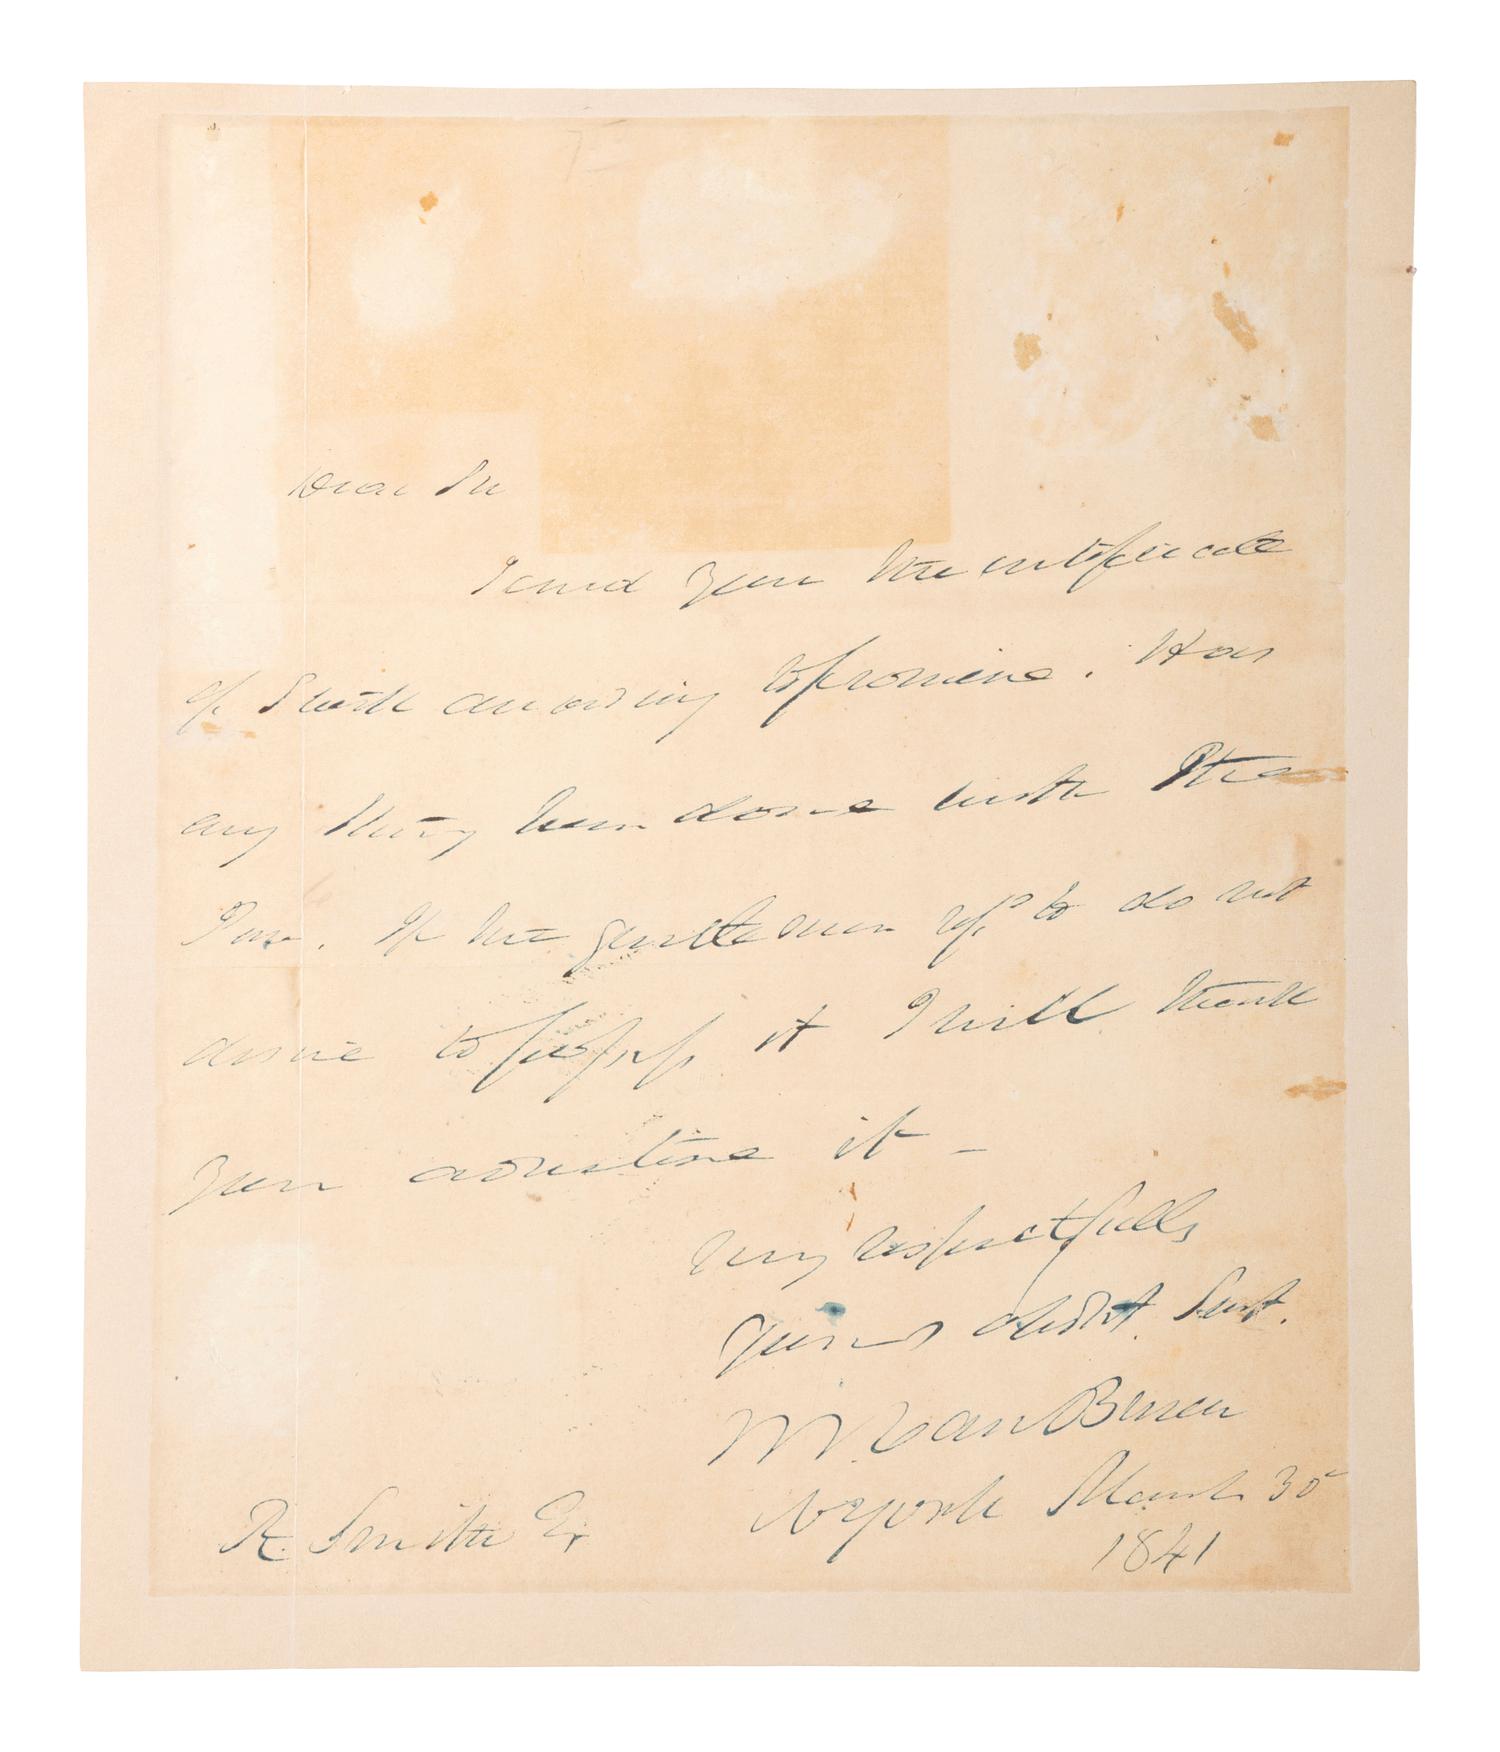 Dear Sir
I send you the certificate
of Stock according to promise. Has
any thing been done with the
If the gentlemen do not
desire to it I will thank
you advertise it -
Very respectfully
Your obdt. Servt.
M Van Buren
NYork March 30
1841
R. Smith Es